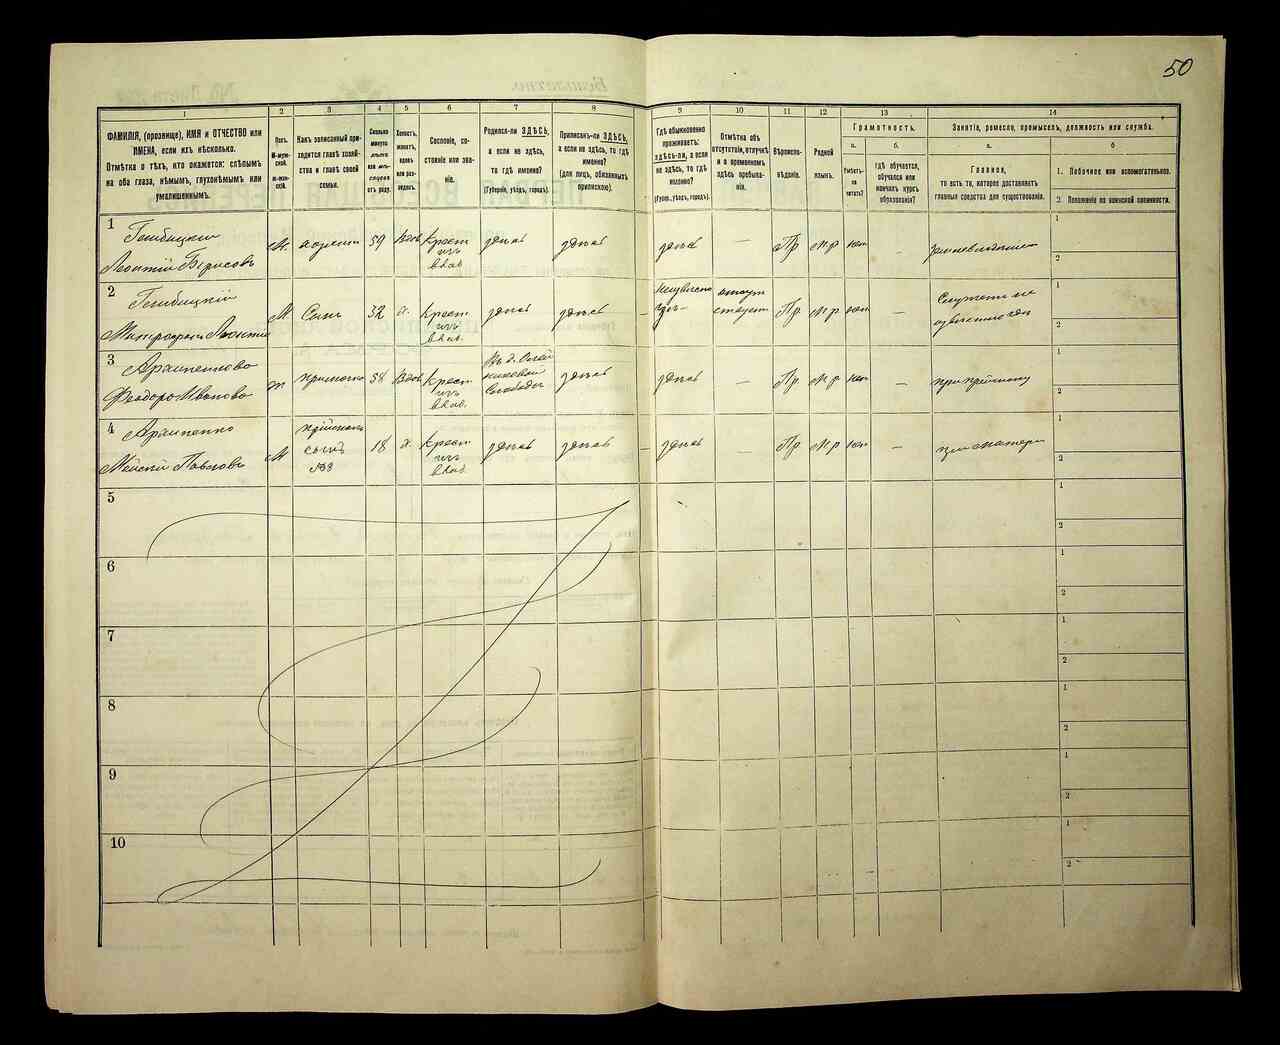 50
1
2
3
4
5
6
7
8
9
10
11
12
13
14
ФАМИЛІЯ, (прозвище), ИМЯ и ОТЧЕСТВО или
ИМЕНА, если ихъ нѣсколько.
Отмѣтка о тѣхъ, кто окажется: слѣпымъ
на оба глаза, нѣмымъ, глухонѣмымъ или
умалишеннымъ.
Полъ.
М-муж-
ской.
Ж-жен-
скій.
Какъ записанный при-
ходится главѣ хозяй-
ства и главѣ своей
семьи.
Сколько
минуло
лѣтъ
или мѣ-
сяцевъ
отъ роду.
Холостъ,
женатъ,
вдовъ
или раз-
веденъ.
Сословіе, со-
стояніе или зва-
ніе.
Родился-ли ЗДѢСЬ,
а если не здѣсь,
то гдѣ именно?
(Губернія, уѣздъ, городъ).
Приписанъ-ли ЗДѢСЬ,
а если не здѣсь, то гдѣ
именно?
(для лицъ, обязанныхъ
припискою).
Гдѣ обыкновенно
проживаетъ:
здѣсь-ли, а если
не здѣсь, то гдѣ
именно?
(Губер., уѣздъ, городъ).
Отмѣтка объ
отсутствіи, отлучкѣ
и о временномъ
здѣсь пребыва-
ніи.
Вѣроиспо-
вѣданіе.
Родной
языкъ.
Грамотность.
а.
б.
Умѣетъ-
ли
читать?
гдѣ обучается,
обучался или
кончилъ курсъ
образованія?
Занятіе, ремесло, промыселъ, должность или служба.
а.
б
Главное,
то есть то, которое доставляетъ
главныя средства для существованія.
1. Побочное или вспомогательное.
2. Положеніе по воинской повинности.
1
Леонтій Борисовъ
М.
хозяинъ
59
Вдов
Крест
изъ
влад
здѣсь
здѣсь
здѣсь
—
Пр
М р
нѣт
—
земледѣліе
1
2
2
М
Сынъ
32
х.
Крест
изъ
влад.
здѣсь
здѣсь
Неизвѣстно
гдѣ
отсут
ствует
Пр
М р
нѣт
—
1
2
3
Архипенкова
Ивановна
58
Вдов
Крест
изъ
влад.
Слободы
здѣсь
здѣсь
—
Пр
М р
нѣт
—
1
2
4
Архипенко
Павловъ
М
сынъ
18
х
Крест
изъ
влад
здѣсь
здѣсь
здѣсь
—
Пр
М р
нѣт
—
при матери
1
2
5
1
2
6
1
2
7
1
2
8
1
2
9
1
2
10
1
2